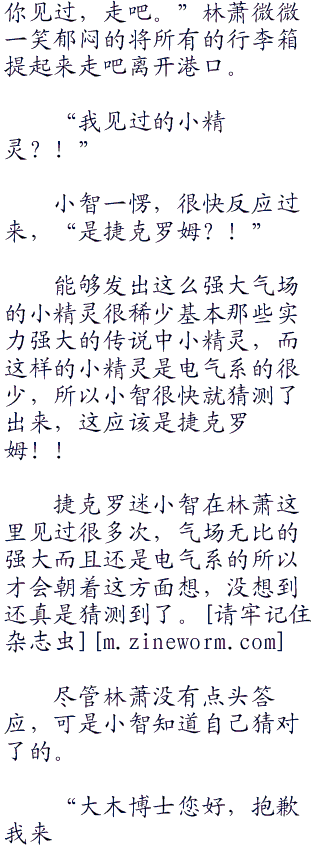 你见过，走吧。”林萧微微
一笑郁闷的将所有的行李箱
提起来走吧离开港口。
“我见过的小精
灵？！”
小智一愣，很快反应过
来，“是捷克罗姆？！”
能够发出这么强大气场
的小精灵很稀少基本那些实
力强大的传说中小精灵，而
这样的小精灵是电气系的很
少，所以小智很快就猜测了
出来，这应该是捷克罗
姆！！
捷克罗迷小智在林萧这
里见过很多次，气场无比的
强大而且还是电气系的所以
才会朝着这方面想，没想到
还真是猜测到了。[请牢记住
杂志虫][m.zineworm.com]
尽管林萧没有点头答
应，可是小智知道自己猜对
了的。
“大木博士您好，抱歉
我来